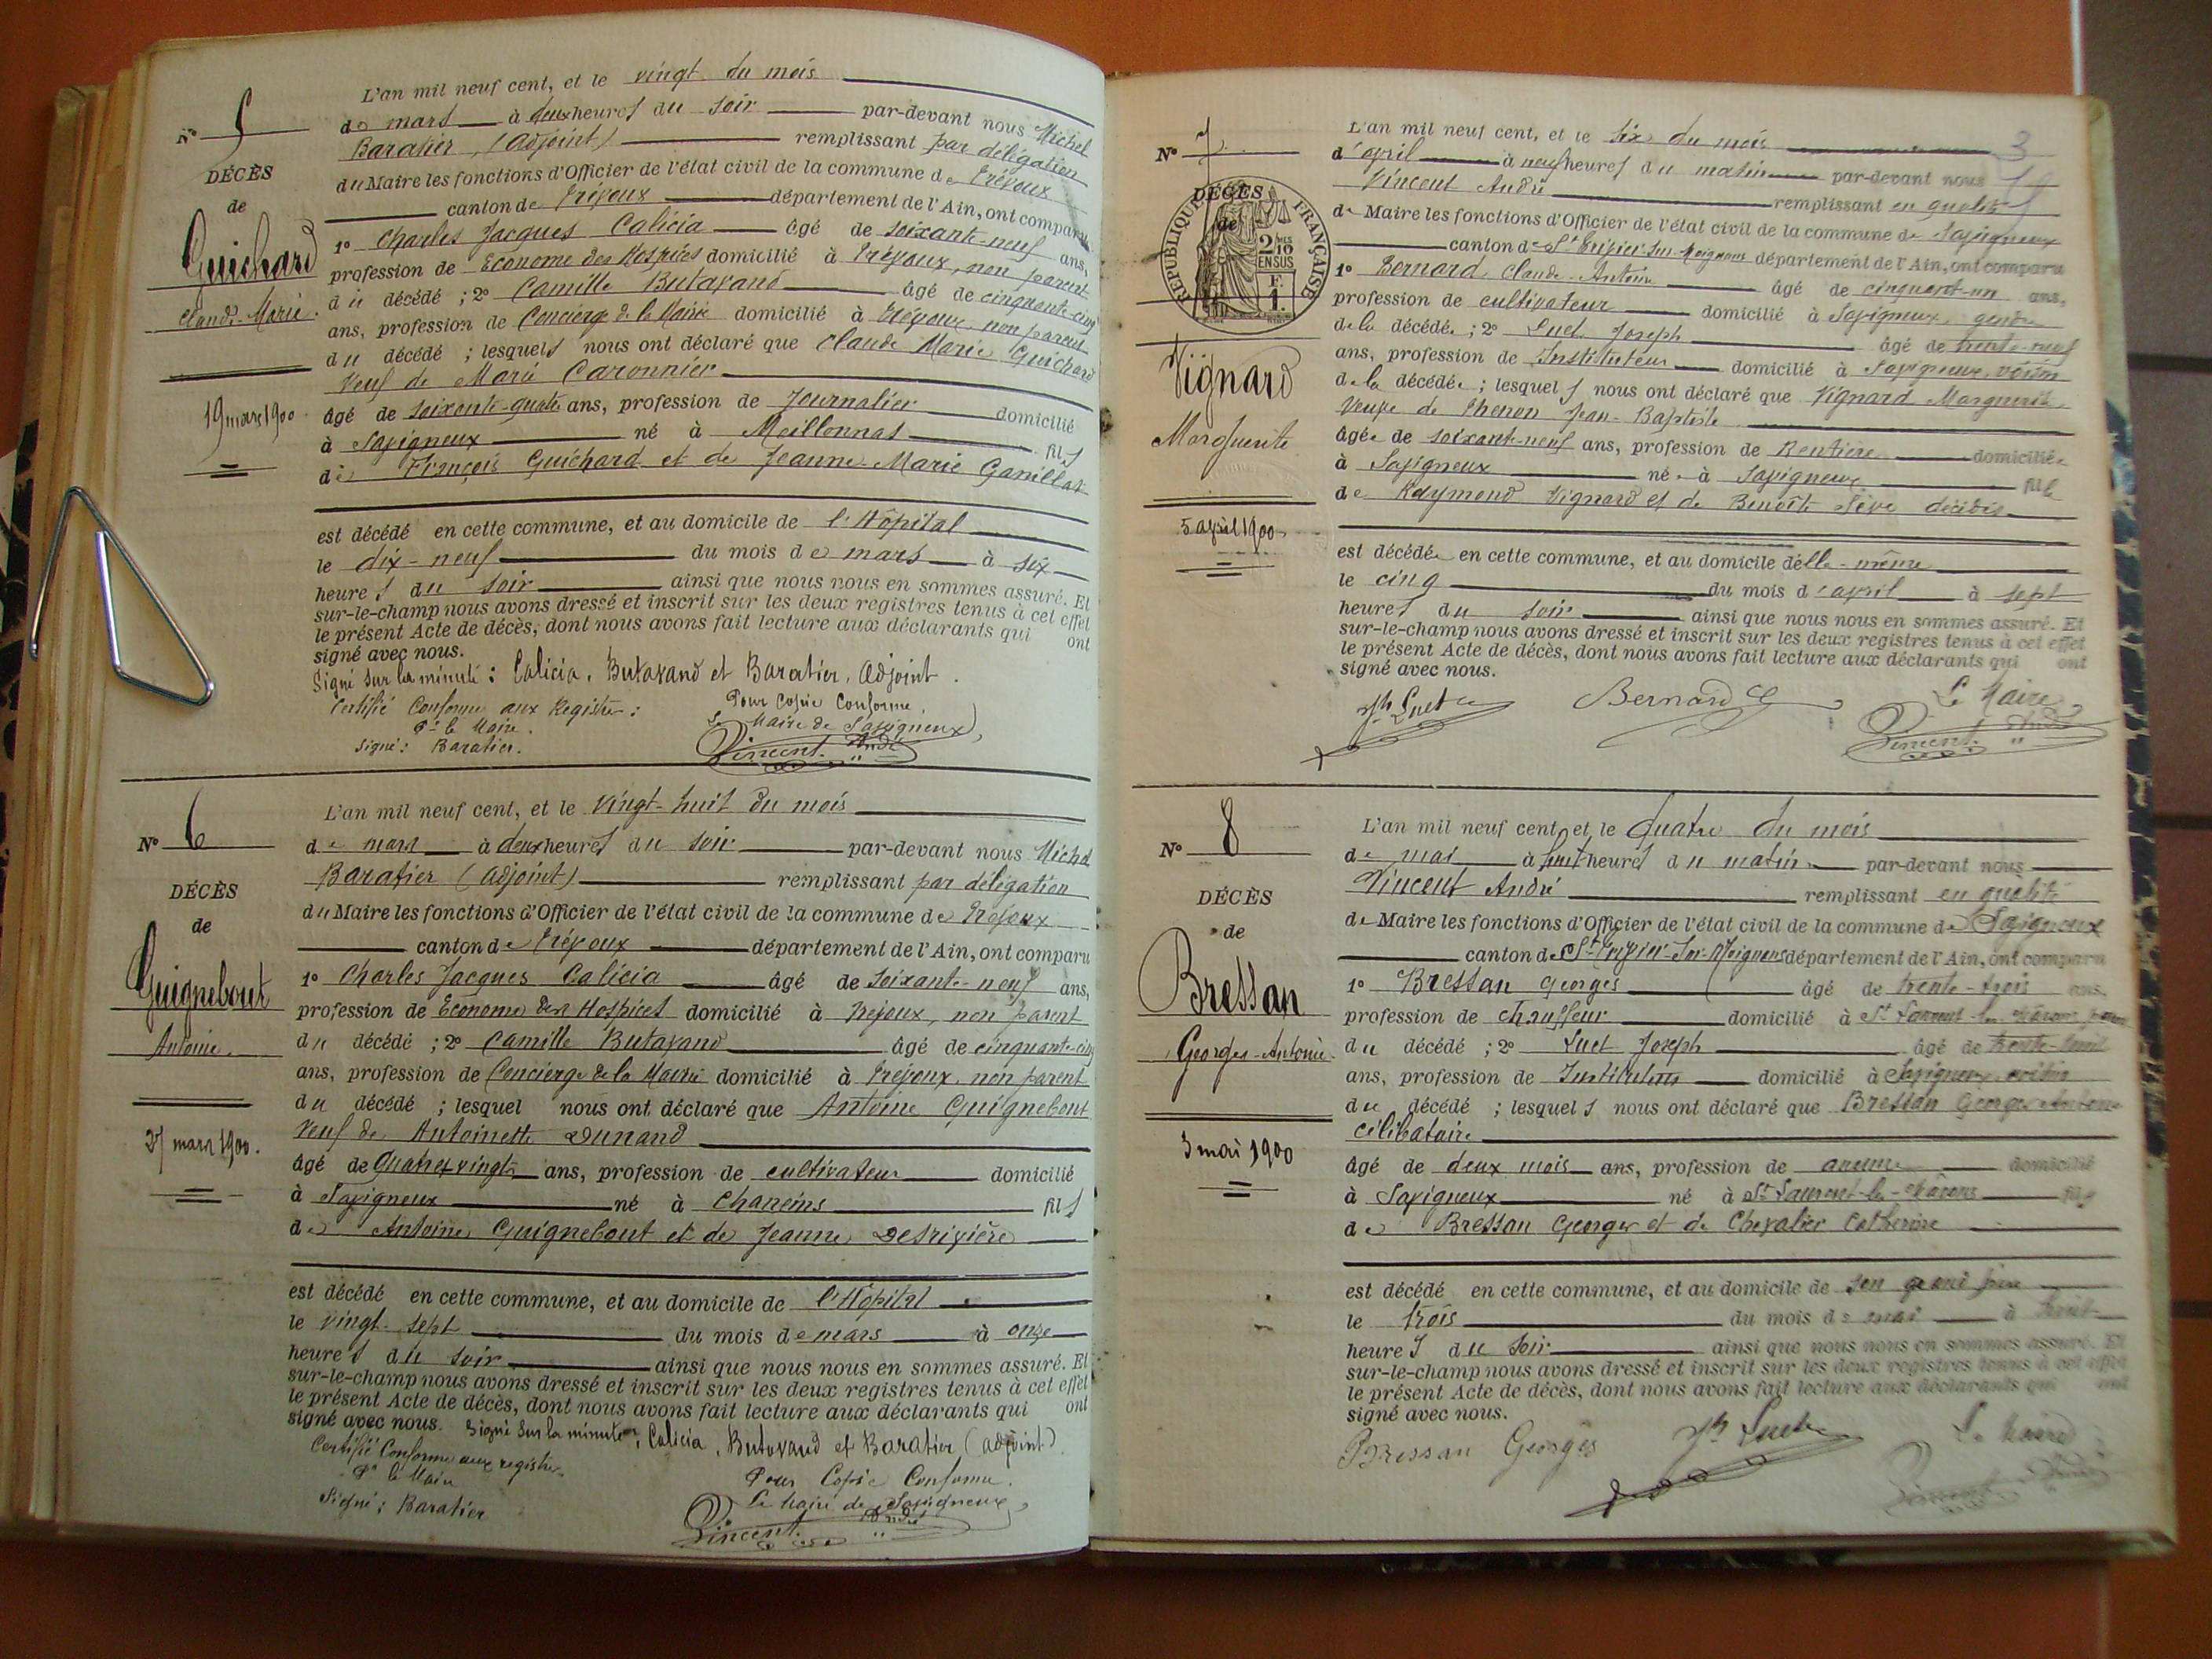 N° 5
DÉCÈS
de
Guichard
Claude-Marie.
19 mars 1900
L'an mil neuf cent, et le vingt du mois
de mars à deux heures du soir par-devant nous Michel
Baratier, (adjoint) remplissant par délégation
du Maire les fonctions d'Officier de l'état civil de la commune de Trévoux
canton de Trévoux département de l'Ain, ont comparu
1° Charles Jacques Calicia âgé de soixante-neuf ans,
profession de Econome des Hospices domicilié à Trévoux, non parent
du décédé ; 2° Camille Butavand âgé de cinquante-cinq
ans, profession de Concierge de la Mairie domicilié à Trévoux, non parent
du décédé ; lesquels nous ont déclaré que Claude Marie Guichard
Veuf de Marie Caronnier
âgé de soixante-quatre ans, profession de Journalier domicilié
à Savigneux né à Meillonnas fils
de François Guichard et de Jeanne-Marie Ganillat
est décédé en cette commune, et au domicile de l'Hôpital
le dix-neuf du mois de mars à six
heures du soir ainsi que nous nous en sommes assuré. Et
sur-le-champ nous avons dressé et inscrit sur les deux registres tenus à cet effet
le présent Acte de décès, dont nous avons fait lecture aux déclarants qui ont
signé avec nous.
Signé sur la minute : Calicia, Butavand et Baratier, adjoint.
Certifié Conforme aux Registres :
Pr le Maire.
Signé : Baratier.
Pour Copie Conforme,
Le Maire de Savigneux,
Vincent André
N° 6
DÉCÈS
de
Guignebout
Antoine.
27 mars 1900.
L'an mil neuf cent, et le vingt-huit du mois
de mars à deux heures du soir par-devant nous Michel
Baratier (adjoint) remplissant par délégation
du Maire les fonctions d'Officier de l'état civil de la commune de Trévoux
canton de Trévoux département de l'Ain, ont comparu
1° Charles Jacques Calicia âgé de soixante-neuf ans,
profession de Econome des Hospices domicilié à Trévoux, non parent
du décédé ; 2° Camille Butavand âgé de cinquante-cinq
ans, profession de Concierge de la Mairie domicilié à Trévoux, non parent
du décédé ; lesquel nous ont déclaré que Antoine Guignebout
Veuf de Antoinette Dunand
âgé de Quatre vingts ans, profession de cultivateur domicilié
à Savigneux né à Chaneins fils
de Antoine Guignebout et de Jeanne Desrivière
est décédé en cette commune, et au domicile de l'Hôpital
le vingt-sept du mois de mars à onze
heures du soir ainsi que nous nous en sommes assuré. Et
sur-le-champ nous avons dressé et inscrit sur les deux registres tenus à cet effet
le présent Acte de décès, dont nous avons fait lecture aux déclarants qui ont
signé avec nous. Signé sur la minute : Calicia, Butavand et Baratier (adjoint).
Certifié Conforme aux registres
Pr le Maire
Signé : Baratier
Pour Copie Conforme.
Le Maire de Savigneux,
Vincent André
3
N° 7
DÉCÈS
de
RÉPUBLIQUE FRANÇAISE
2/10 EN SUS
F. 1.
Vignard
Marguerite
5 avril 1900
L'an mil neuf cent, et le six du mois
d'avril à neuf heures du matin par-devant nous
Vincent André remplissant en qualité
de Maire les fonctions d'Officier de l'état civil de la commune de Savigneux
canton de St Trivier-sur-Moignans département de l'Ain, ont comparu
1° Bernard Claude-Antoine âgé de cinquant-un ans,
profession de cultivateur domicilié à Savigneux, gendre
de la décédée ; 2° Luet Joseph âgé de trente-neuf
ans, profession de Instituteur domicilié à Savigneux, voisin
de la décédée ; lesquels nous ont déclaré que Vignard Marguerite
Veuve de Thenon Jean-Baptiste
âgée de soixante-neuf ans, profession de Rentière domiciliée
à Savigneux née à Savigneux fille
de Raymond Vignard et de Benoîte Sève décédés
est décédée en cette commune, et au domicile d'elle-même
le cinq du mois d'avril à sept
heures du soir ainsi que nous nous en sommes assuré. Et
sur-le-champ nous avons dressé et inscrit sur les deux registres tenus à cet effet
le présent Acte de décès, dont nous avons fait lecture aux déclarants qui ont
signé avec nous.
Jh Luet Bernard Le Maire
Vincent André
N° 8
DÉCÈS
de
Bressan
Georges-Antoine.
3 mai 1900
L'an mil neuf cent, et le quatre du mois
de mai à huit heures du matin par-devant nous
Vincent André remplissant en qualité
de Maire les fonctions d'Officier de l'état civil de la commune de Savigneux
canton de St Trivier-sur-Moignans département de l'Ain, ont comparu
1° Bressan Georges âgé de trente-trois ans,
profession de chauffeur domicilié à St Laurent-les-Mâcon père
du décédé ; 2° Luet Joseph âgé de trente-neuf
ans, profession de Instituteur domicilié à Savigneux, voisin
du décédé ; lesquels nous ont déclaré que Bressan Georges Antoine
célibataire
âgé de deux mois ans, profession de aucune domicilié
à Savigneux né à St Laurent-les-Mâcon fils
de Bressan Georges et de Chevalier Catherine
est décédé en cette commune, et au domicile de son grand père
le trois du mois de mai à huit
heures du soir ainsi que nous nous en sommes assuré. Et
sur-le-champ nous avons dressé et inscrit sur les deux registres tenus à cet effet
le présent Acte de décès, dont nous avons fait lecture aux déclarants qui ont
signé avec nous.
Bressan Georges Jh Luet Le Maire
Vincent André